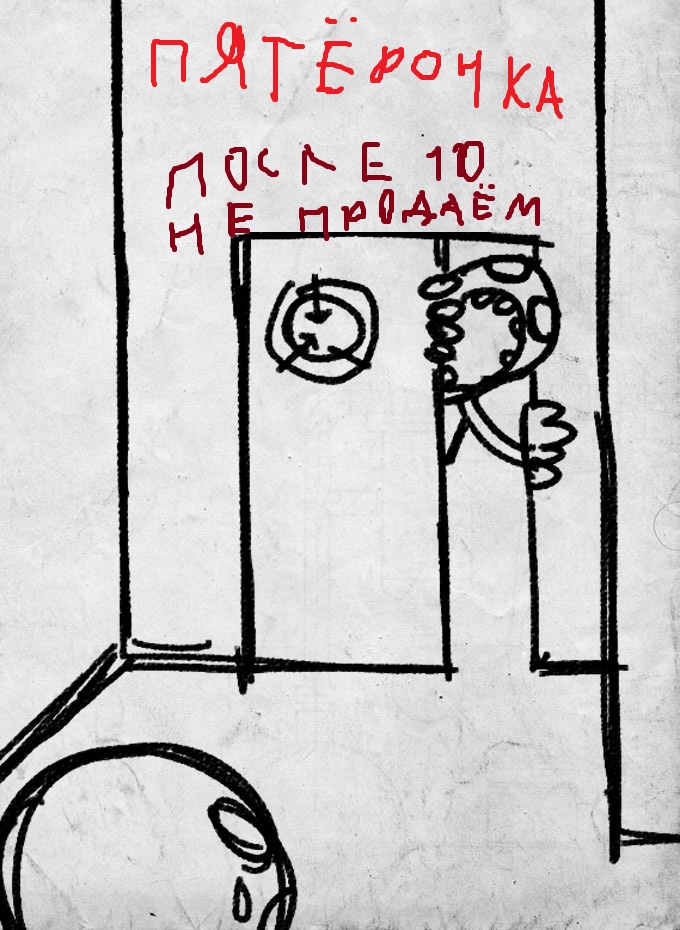 ПЯТЁРОЧКА
ПОСЛЕ 10
НЕ ПРОДАЁМ